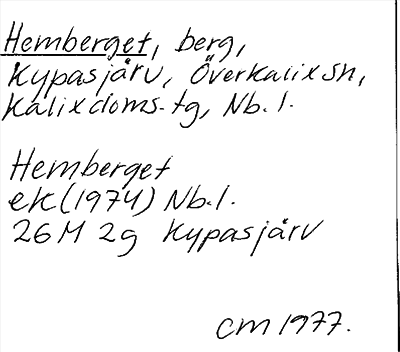 Hemberget, berg,
Kypasjärv, Överkalix sn,
Kalix doms. tg, Nb. l.
Hemberget
ek (1974) Nb. l.
26 M 2g Kypasjärv
CM 1977.